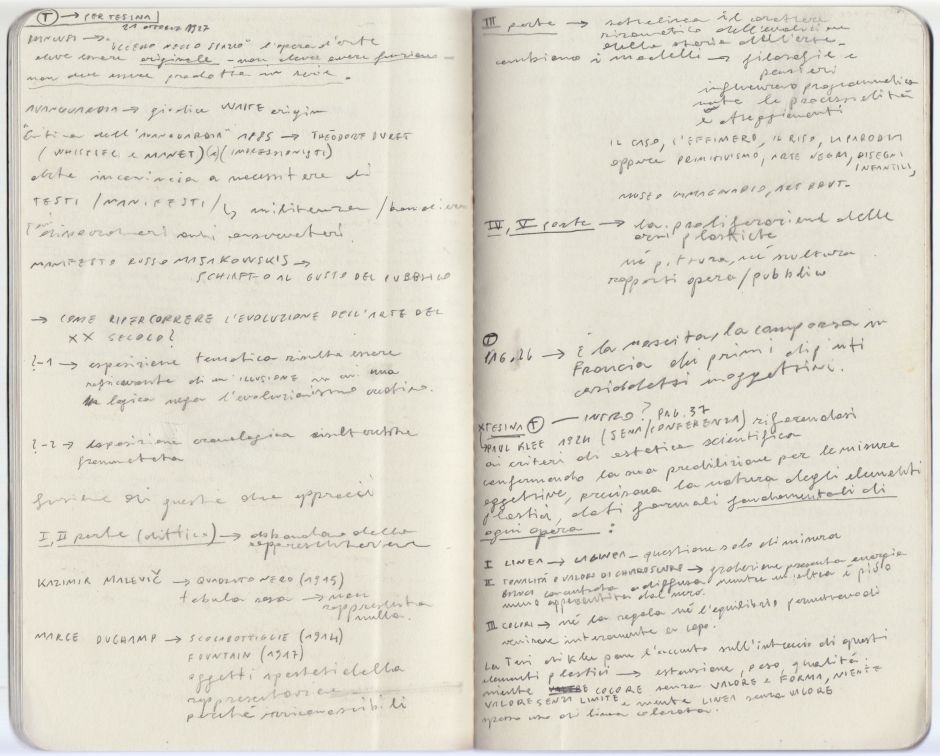 (T) → PER TESINA
21 OTTOBRE 1927
BRANCUSI →
"UCCELLO NELLO SPAZIO" l'opera d'arte
deve essere originale - non deve avere funzione -
non deve essere prodotta in serie.
AVANGUARDIA → giudice WAITE origin
"Critica dell'AVANGUARDIA" 1885 → THÉODORE DURET
(WHISTLER e MANET) (IMPRESSIONISTI)
arte incomincia a necessitare di
TESTI / MANIFESTI / ↳ militanza /
MANIFESTO RUSSO MAJAKOWSKIJ →
SCHIAFFO AL GUSTO DEL PUBBLICO
→ COME RIPERCORRERE L'EVOLUZIONE DELL'ARTE DEL
XX SECOLO?
?-1 → esposizione tematica risulta essere
di un'ILLUSIONE in cui una
logica nega l'evoluzionismo
?-2 → esposizione cronologica risulterebbe
frammentata
fusione di questi due approcci
I, II parte (dittico) → abbandono della
rappresentazione
KAZIMIR MALEVIČ → QUADRATO NERO (1915)
tabula rasa → non
rappresenta
nulla.
MARCE DUCHAMP → SCOLABOTTIGLIE (1914)
FOUNTAIN (1917)
oggetti spostati della
rappresentazione
perché irriconoscibili
III parte → sottolinea il carattere
rizomatico dell'evoluzione
della storia dell'arte.
cambiano i modelli → filosofie e
pensieri
influenzano programmatica
mente le processualità
e atteggiamenti
IL CASO, L'EFFIMERO, IL RISO, LA PARODIA
oppure PRIMITIVISMO, ARTE NEGRA, DISEGNI
INFANTILI,
MUSEO IMMAGINARIO, ART BRUT.
IV, V parte → la proliferazione delle
arti plastiche
né pittura, né scultura
rapporti opera/pubblico
(T)
PAG. 26 → È la nascita, la comparsa in
Francia dei primi dipinti
cosiddetti inoggettivi.
X TESINA (T) — INTRO? PAG. 37
PAUL KLEE 1924 (JENA/CONFERENZA) riferendosi
ai criteri di estetica scientifica
confermando la sua predilizione per le misure
oggettive, precisava la natura degli elementi
plastici, dati formali fondamentali di
ogni opera:
I LINEA → questione solo di misura
II TONALITÀ E VALORI DI CHIAROSCURO → gradazione presenta energia
bianca concentrata o diffusa mentre un'altra è più o
meno appesantita dal nero.
III COLORI → né la regola né l'equilibrio permettono di
venirne interamente a capo.
La Tesi di Klee pone l'accento sull'intreccio di questi
elementi plastici → estensione, peso, qualità.
niente COLORE senza VALORE e FORMA, NIENTE
VALORE SENZA LIMITE e niente LINEA senza VALORE
spesso uso di linea colorata.